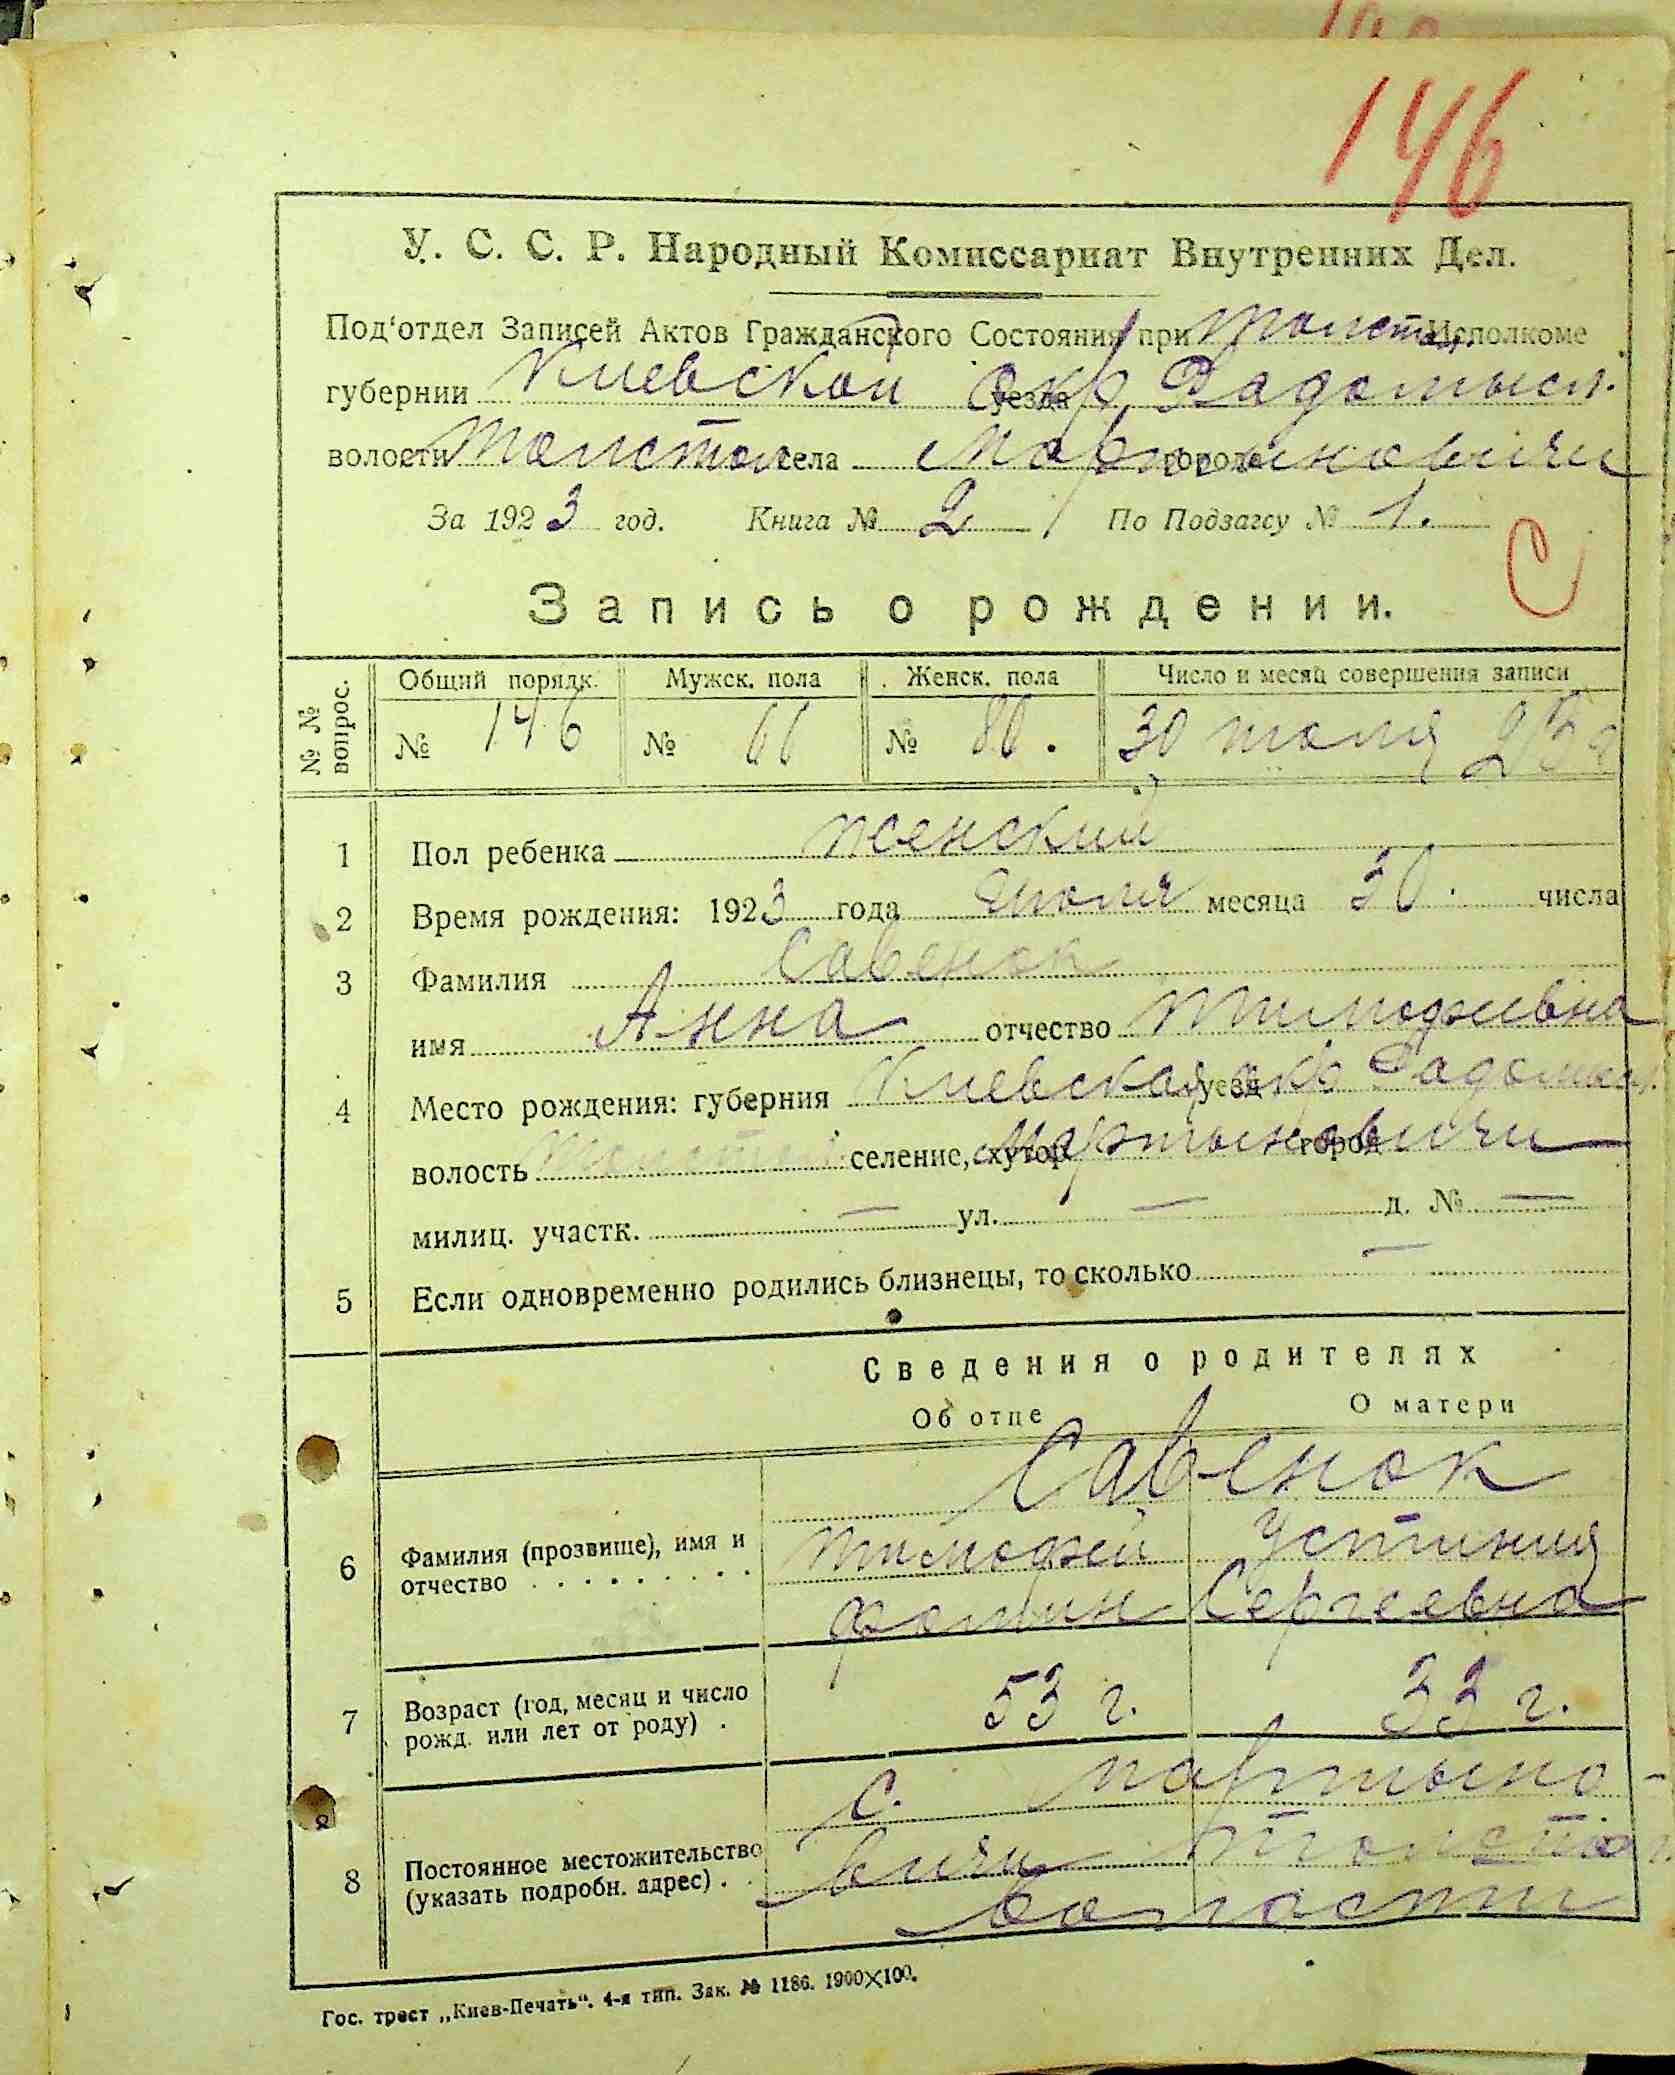 146
У. С. С. Р. Народный Комиссариат Внутренних Дел.
Под'отдел Записей Актов Гражданского Состояния при Толстов. Исполкоме
губернии Киевской окр. уезда Радомысл.
волости Толстов села Мартыновичи города
За 1923 год. Книга № 2 По Подзагсу № 1.
С
Запись о рождении.
№ № вопрос.
Общий порядк. Мужск. пола Женск. пола Число и месяц совершения записи
№ 146 № 66 № 80. 30 июля 23 г
1 Пол ребенка женский
2 Время рождения: 1923 года июля месяца 30. числа
3 Фамилия Савенок
имя Анна отчество Тимофиевна
4 Место рождения: губерния Киевская уезд окр Радомысл.
волость селение, хутор Мартыновичи город
милиц. участк. — ул. — д. № —
5 Если одновременно родились близнецы, то сколько —
Сведения о родителях
Об отце О матери
Савенок
6 Фамилия (прозвище), имя и Тимофей Устиния
отчество . . . . . . . . . Фомин Сергеевна
7 Возраст (год, месяц и число 53 г. 33 г.
рожд. или лет от роду) .
с. Мартыно-
8 Постоянное местожительство вичи Толстов
(указать подробн. адрес) . . волости
Гос. трест „Киев-Печать“. 4-я тип. Зак. № 1186. 1900×100.